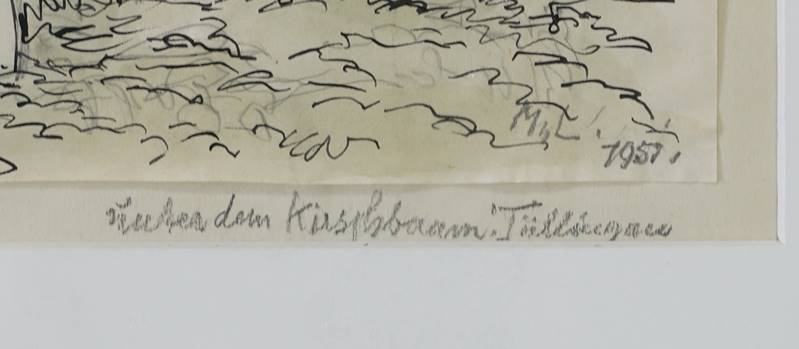 M.L.
1951.
dem Kirschbaum. Tüllingen